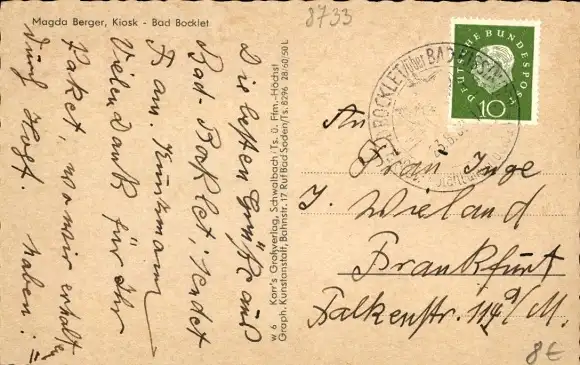 Magda Berger, Kiosk - Bad Bocklet
8733
Die besten Grüße aus
Bad-Bocklet, sendet
Fam.
Vielen Dank für Ihr
Paket, wo wir erhalten
durch
haben!
w 6 Karr's Großverlag, Schwalbach/Ts. ü. Ffm.-Höchst
Graph. Kunstanstalt, Bahnstr. 17 Ruf Bad Soden/Ts. 8296 28/60/50 L
BOCKLET über BAD KISSINGEN
DEUTSCHE BUNDESPOST
10
An
Frau Inge
J. Wieland
Frankfurt
Falkenstr. 114a/M.
8€